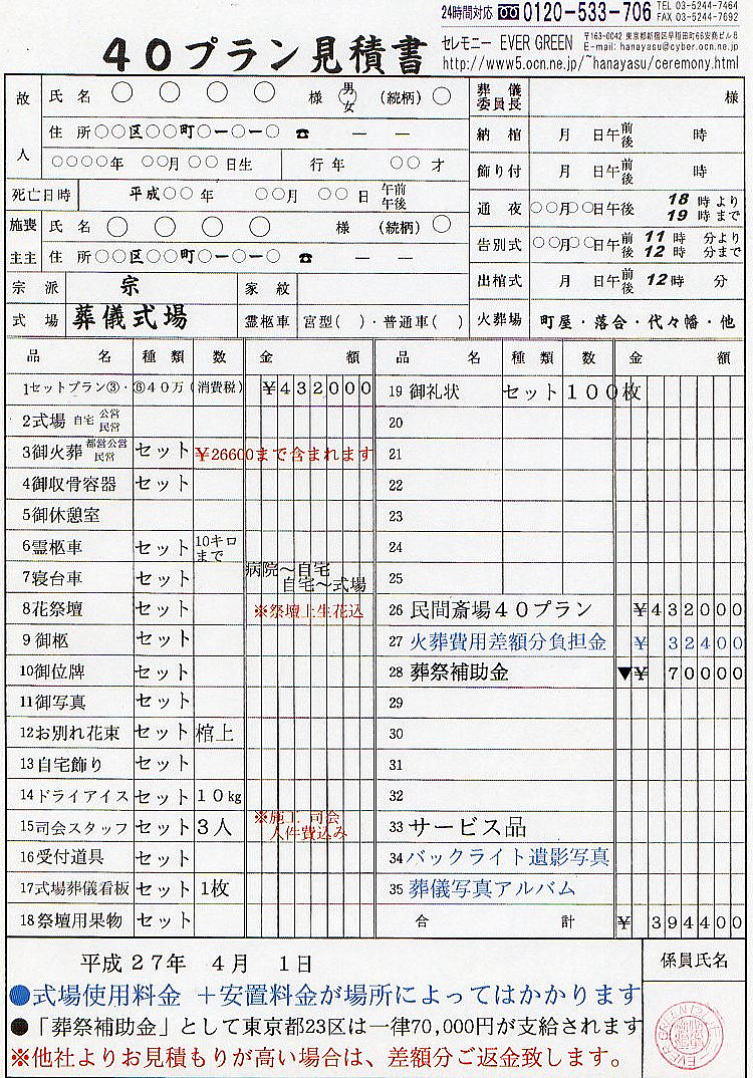 24時間対応 0120-533-706 TEL 03-5244-7464
FAX 03-5244-7692
40プラン見積書
セレモニー EVER GREEN 〒163-0042 東京都新宿区早稲田町66安商ビル8
E-mail: hanayasu@cyber.ocn.ne.jp
http://www5.ocn.ne.jp/~hanayasu/ceremony.html
故人 氏名 ○ ○ ○ ○ 様 男女 (続柄) ○
住所 ○○区○○町○ー○ー○ ☎ ー ー
○○○○年 ○○月 ○○ 日生 行年 ○○ 才
死亡日時 平成○○ 年 ○○月 ○○ 日 午前 午後
施主 喪主 氏名 ○ ○ ○ ○ 様 (続柄) ○
住所 ○○区○○町○ー○ー○ ☎ ー ー
宗派 宗 家紋
式場 葬儀式場 霊柩車 宮型( )・普通車( )
葬儀委員長 様
納棺 月 日午前後 時
飾り付 月 日午前後 時
通夜 ○○月○○日午後 18時より 19時まで
告別式 ○○月○○日午前後 11時 分より 12時 分まで
出棺式 月 日午前後 12時 分
火葬場 町屋・落合・代々幡・他
品名 種類 数 金額
1セットプラン③・⑧40万(消費税) ¥432000
2式場 自宅 公営 民営
3御火葬 都営公営 民営 セット ¥26600まで含まれます
4御収骨容器 セット
5御休憩室
6霊柩車 セット 10キロまで
7寝台車 セット 病院～自宅 自宅～式場
8花祭壇 セット ※祭壇上生花込
9御柩 セット
10御位牌 セット
11御写真 セット
12お別れ花束 セット 棺上
13自宅飾り セット
14ドライアイス セット 10kg
15司会スタッフ セット 3人 ※施工 司会 人件費込み
16受付道具 セット
17式場葬儀看板 セット 1枚
18祭壇用果物 セット
品名 種類 数 金額
19 御礼状 セット 100枚
20
21
22
23
24
25
26 民間斎場40プラン ¥432000
27 火葬費用差額分負担金 ¥ 32400
28 葬祭補助金 ▼¥ 70000
29
30
31
32
33 サービス品
34 バックライト遺影写真
35 葬儀写真アルバム
合計 ¥ 394400
平成27年 4月 1日
係員氏名
●式場使用料金 +安置料金が場所によってはかかります
●「葬祭補助金」として東京都23区は一律70,000円が支給されます
※他社よりお見積もりが高い場合は、差額分ご返金致します。